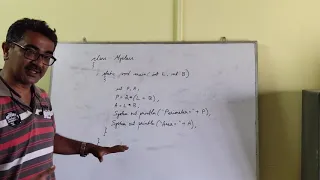 class Myclass
{
{ static void main (int L, int B)
int P, A;
P = 2*(L + B);
A = L * B;
System.out.println ("Perimeter=" + P);
System.out.println ("Area=" + A);
}
}